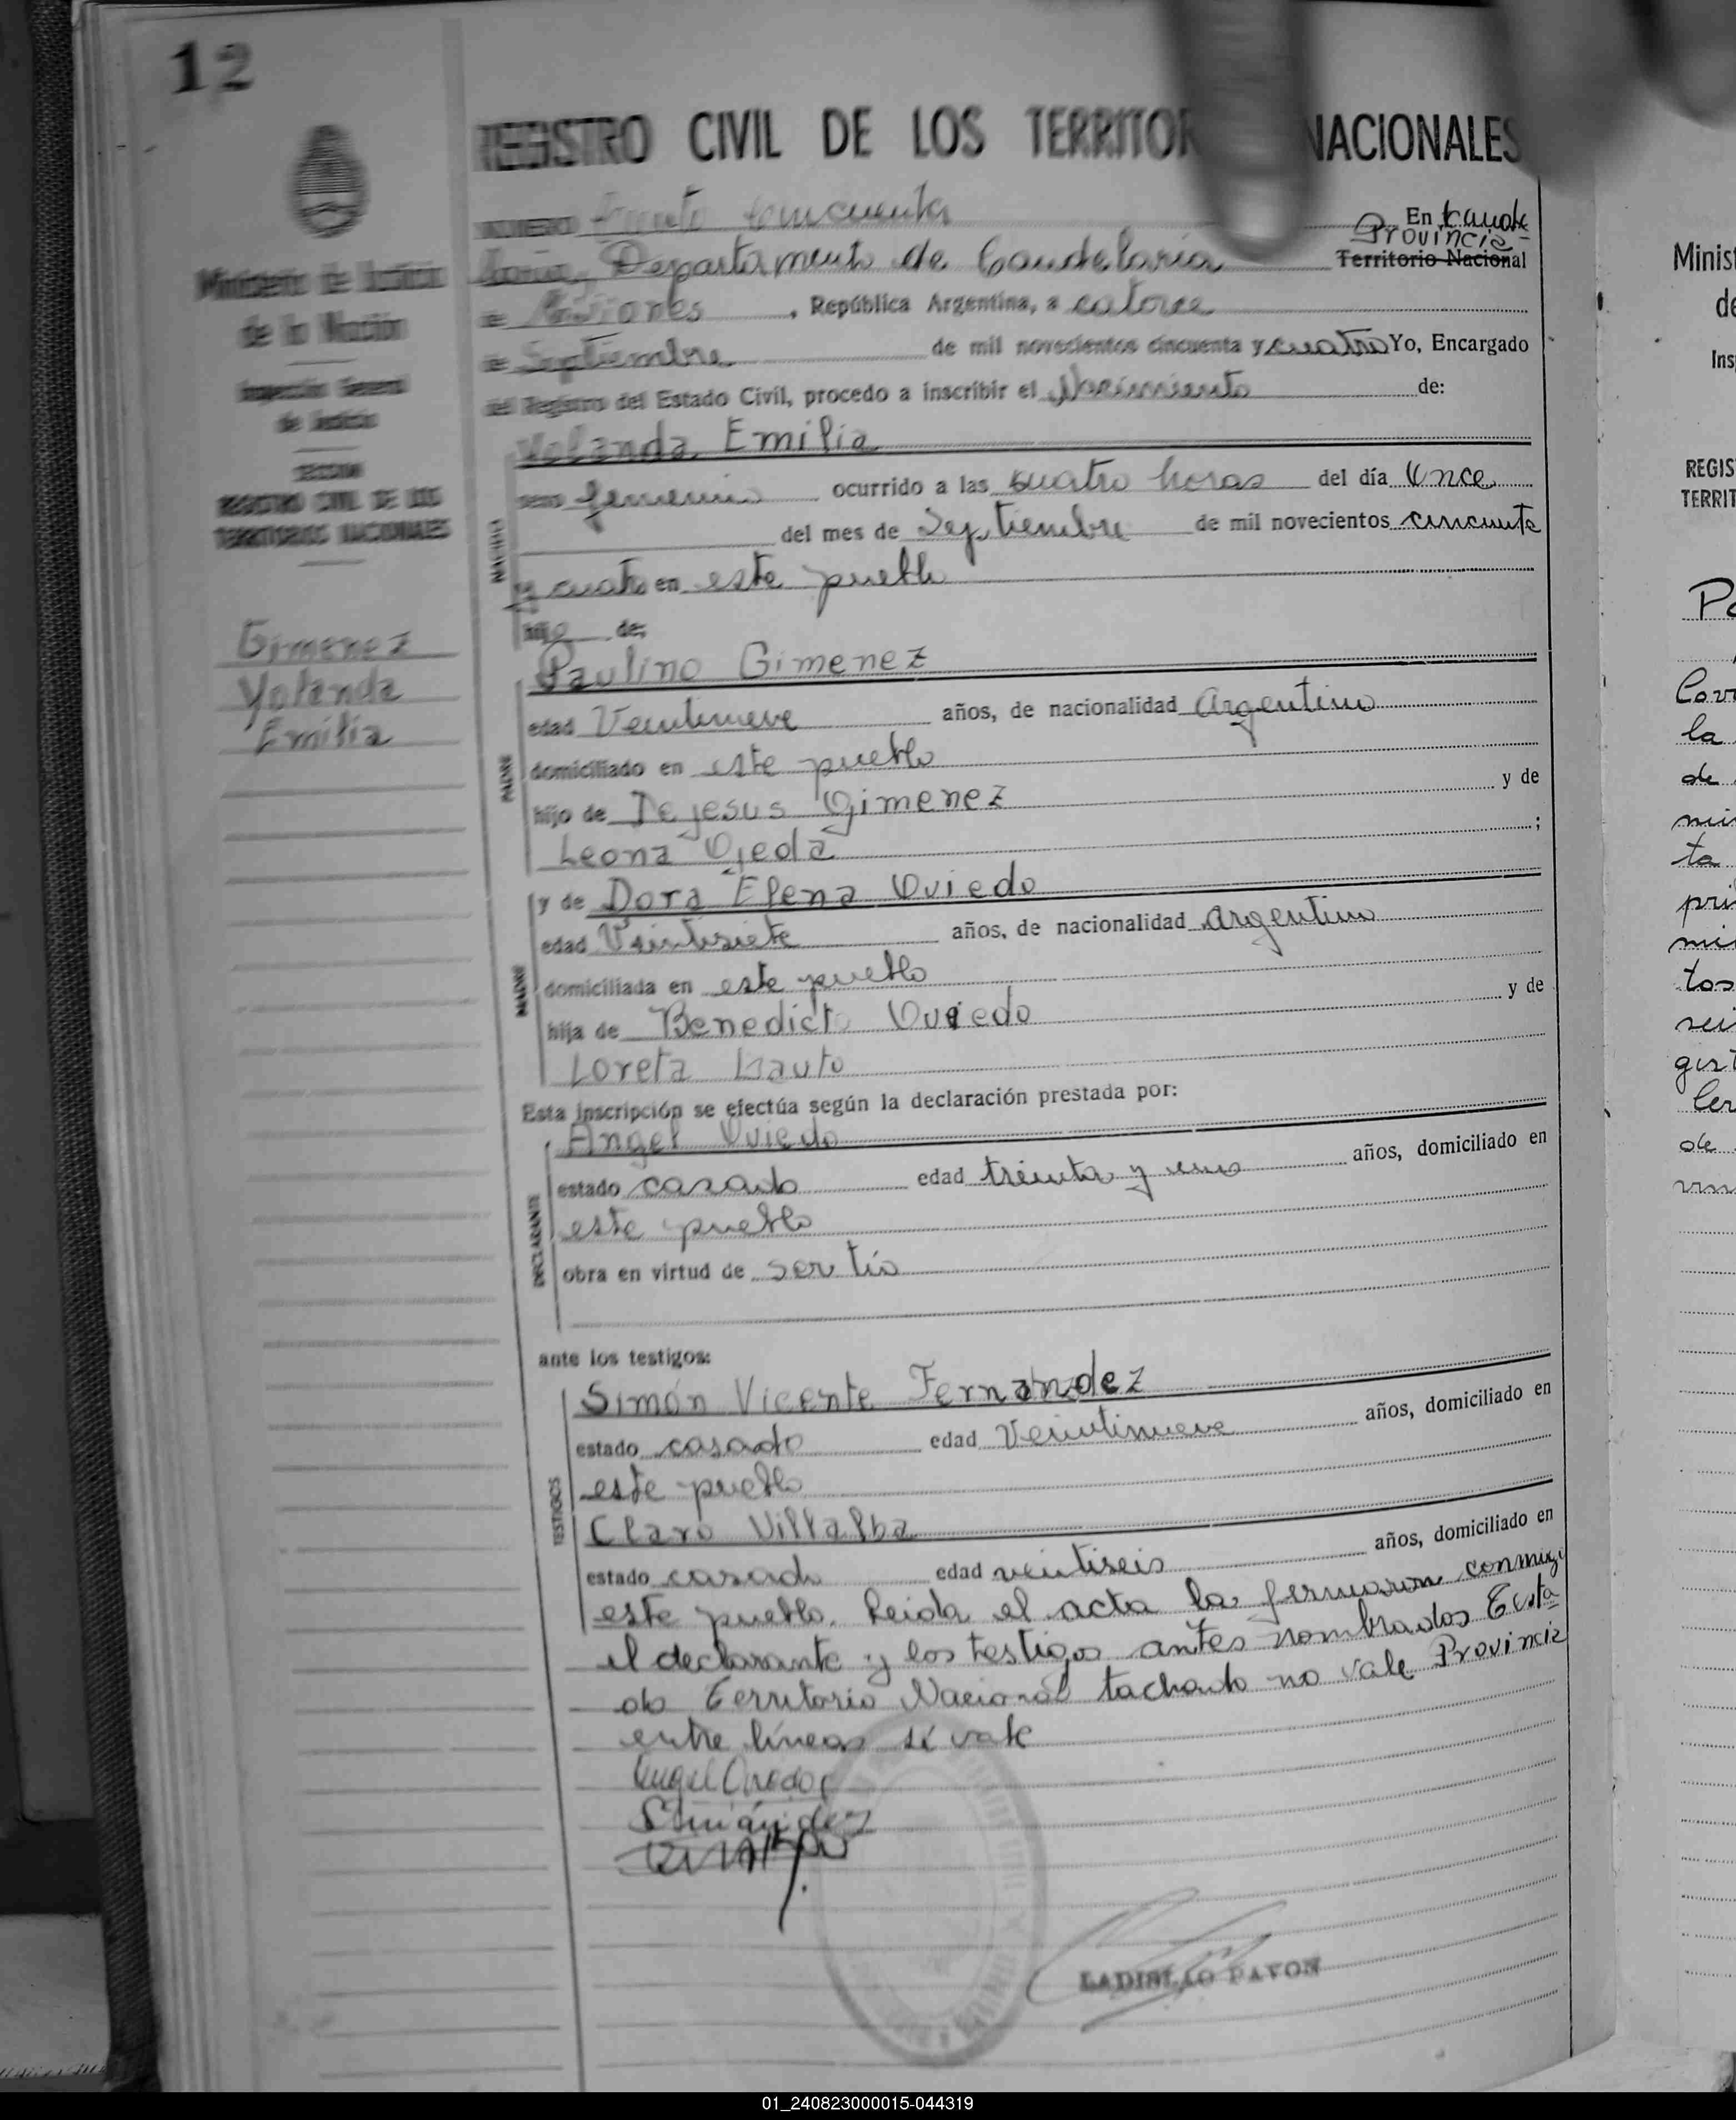 12
REGISTRO CIVIL DE LOS TERRITOR NACIONALES
NUMERO Ciento cincuenta En Cande
Provincia
laria, Departamento de Candelaria Territorio Nacional
de Misiones, República Argentina, a catorce
de Septiembre de mil novecientos cincuenta y cuatro Yo, Encargado
del Registro del Estado Civil, procedo a inscribir el Nacimiento de:
Yolanda Emilia
sexo femenino ocurrido a las cuatro horas del día Once
del mes de Septiembre de mil novecientos cincuenta
y cuatro en este pueblo
hija de:
Paulino Gimenez
edad Veintinueve años, de nacionalidad Argentino
domiciliado en este pueblo
hijo de Dejesus Gimenez y de
Leona Ojeda ;
y de Dora Elena Oviedo
edad Veintisiete años, de nacionalidad argentina
domiciliada en este pueblo
hija de Benedicto Oviedo y de
Loreta
Esta inscripción se efectúa según la declaración prestada por:
Angel Oviedo
estado casado edad treinta y uno años, domiciliado en
este pueblo
obra en virtud de ser tío
ante los testigos:
Simón Vicente Fernandez
estado casado edad Veintinueve años, domiciliado en
este pueblo
Claro Villalba
estado casado edad veintiseis años, domiciliado en
este pueblo. Leida el acta la firmaron conmigo
el declarante y los testigos antes nombrados Testa
do Territorio Nacional tachado no vale Provincia
entre líneas sí vale
Angel Oviedo
LADISLAO PAVON
Ministerio de Justicia
de la Nación
Inspección General
de Justicia
SECCION
REGISTRO CIVIL DE LOS
TERRITORIOS NACIONALES
Gimenez
Yolanda
Emilia
NACIDO
PADRE
MADRE
DECLARANTE
TESTIGOS
Minis
de
Ins
REGIS
TERRIT
la
de
ta
pri
mi
tos
de
01_240823000015-044319